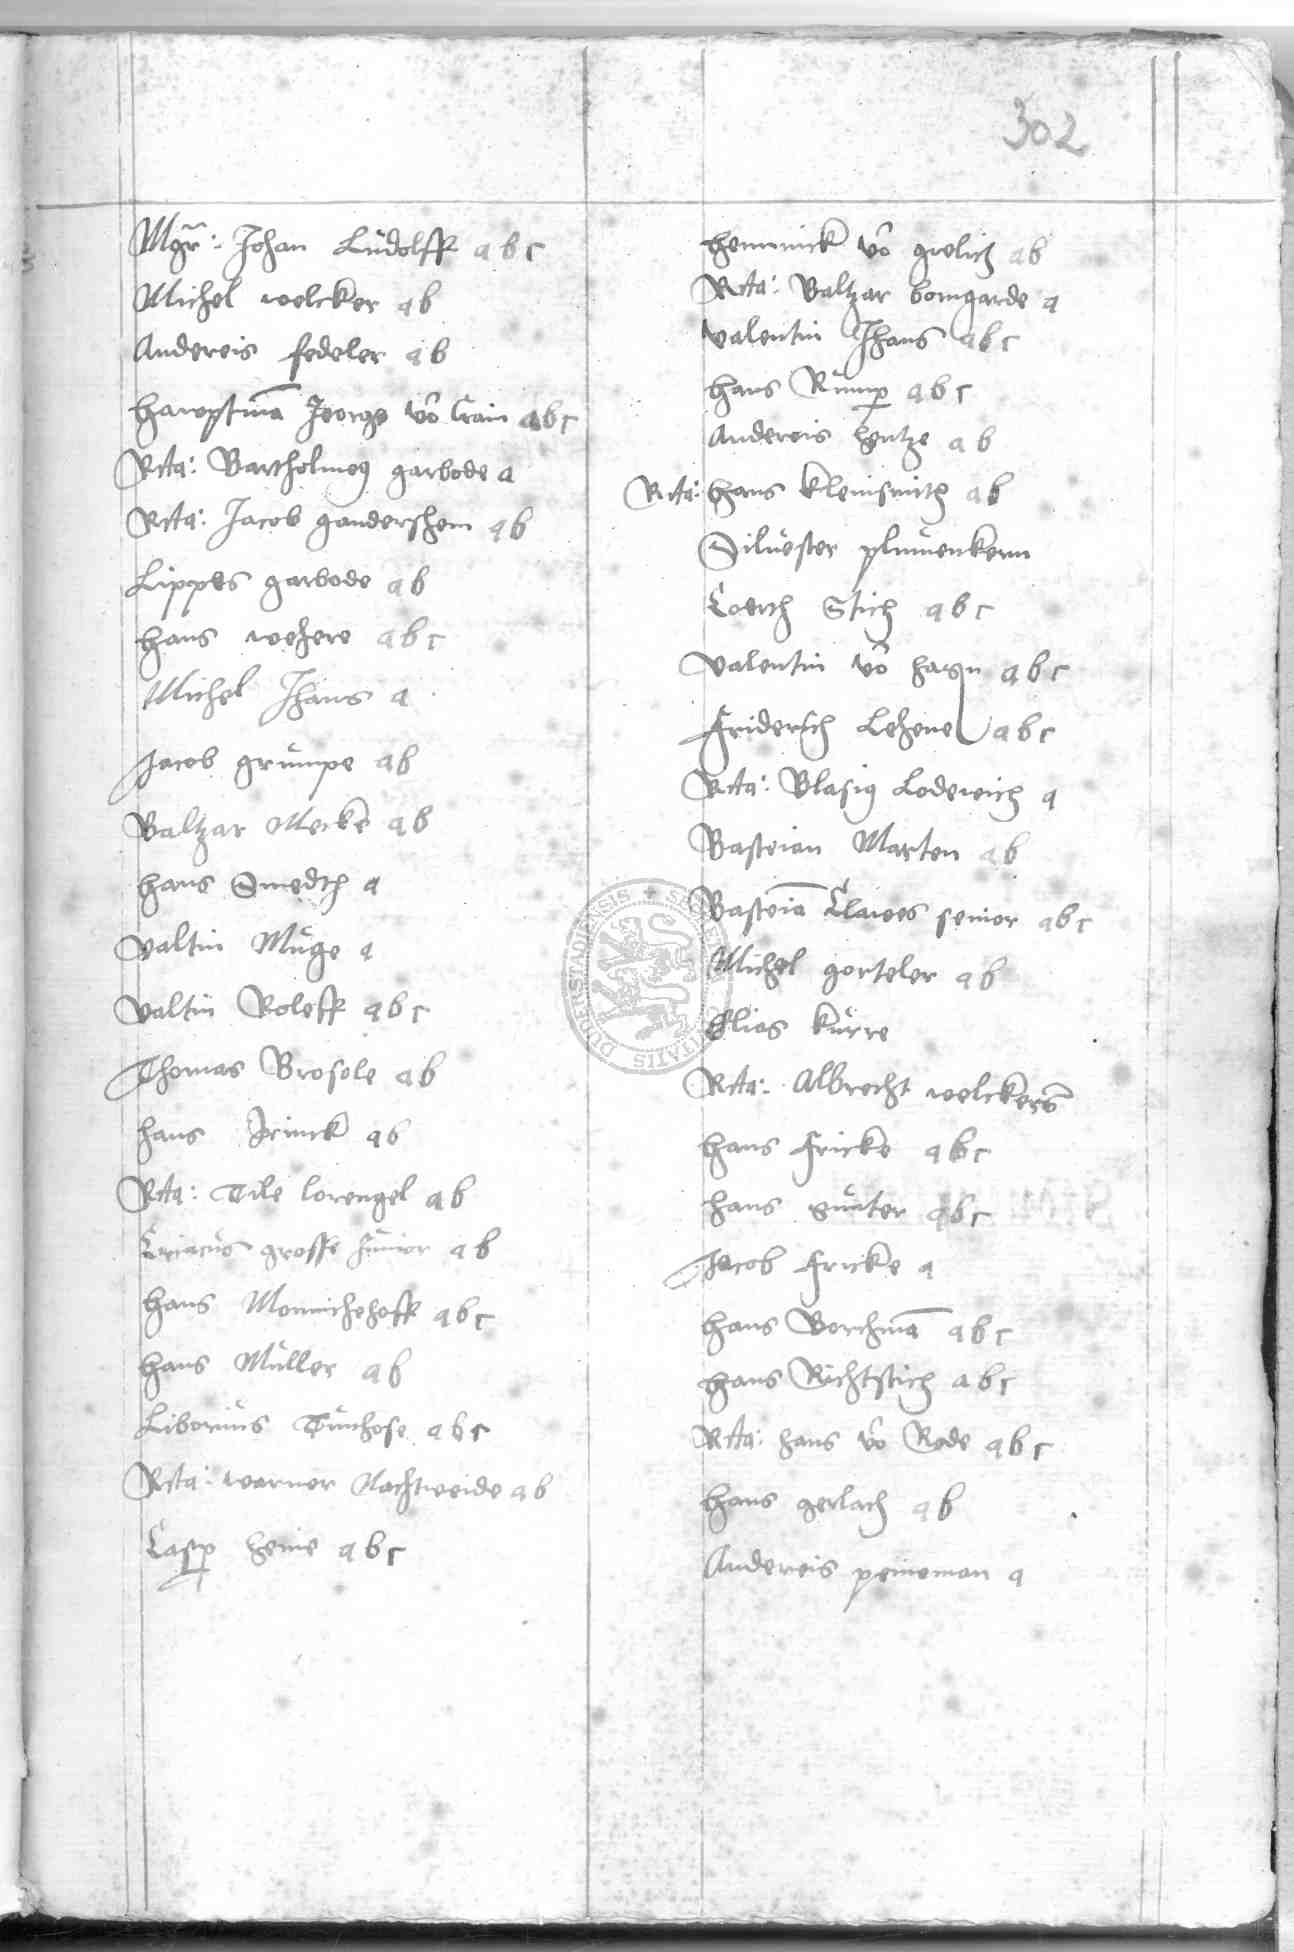 302
Mgr: Johan Ludolff a b c
Michel welcker a b
Andereis fedeler a b
hauptmā Jeorge vō Crain a b c
Rcta: Bartholmeꝰ garbode a
Rcta: Jacob gandershem a b
Lippes garbode a b
hans wehere a b c
Michel Jhans a
Jacob grumpe a b
Baltzar Mecke a b
hans Smedth a
Valtin Muge a
Valtin Roleff a b c
Thomas Brosole a b
hans Frinck a b
Rcta: Tile lorengel a b
Ciriacus grosse Junior a b
hans Monnichehoff a b c
hans Muller a b
Liborius Tunhose a b c
Rcta: warner Nachtweide a b
Casp heine a b c
henninck vō grelich a b
Rcta: Baltzar bomgarde a
valentin Jhans a b c
hans Rump a b c
Andereis hentze a b
Rcta: hans kleinsmith a b
Siluester plumenkern
Coerth Stich a b c
Valentin vō hagn a b c
Friderich Lehene a b c
Rcta: Blasiꝰ Lodewich a
Basteian Marten a b
Basteiā Clawes senior a b c
Michel gorteler a b
Elias kurre
Rcta: Albrecht welckers
hans Fricke a b c
hans gunter a b c
Jacob Fricke a
hans Borchmā a b c
hans Richtstich a b c
Rcta: hans vō Rode a b c
hans gerlach a b
Andereis peineman a